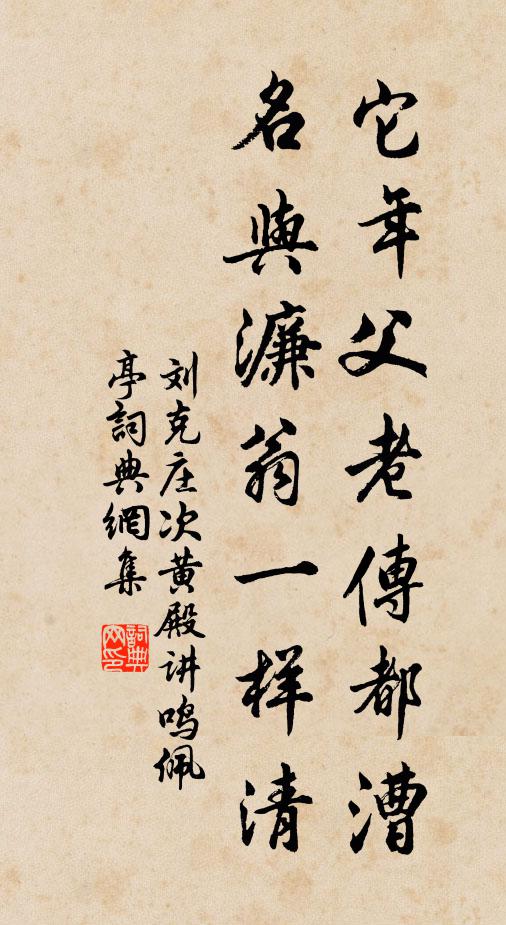 它年父老傳都漕
名與濂翁一样清
刘克庄次黄殿讲鸣佩
亭詞典網集
詞典网印